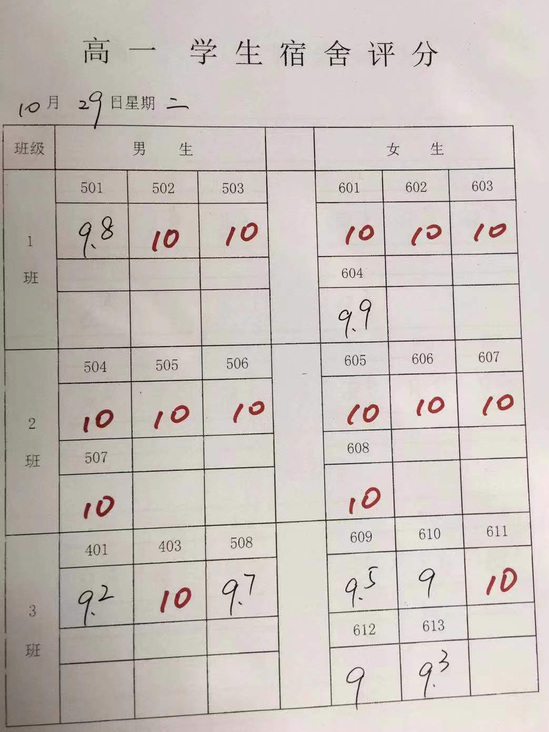 高一 学生宿舍评分
10月 29日星期 二
班级 男 生 女 生
501 502 503 601 602 603
9.8 10 10 10 10 10
1
班
604
9.9
504 505 506 605 606 607
10 10 10 10 10 10
2
班
507 608
10 10
401 403 508 609 610 611
9.2 10 9.7 9.5 9 10
3
班
612 613
9 9.3